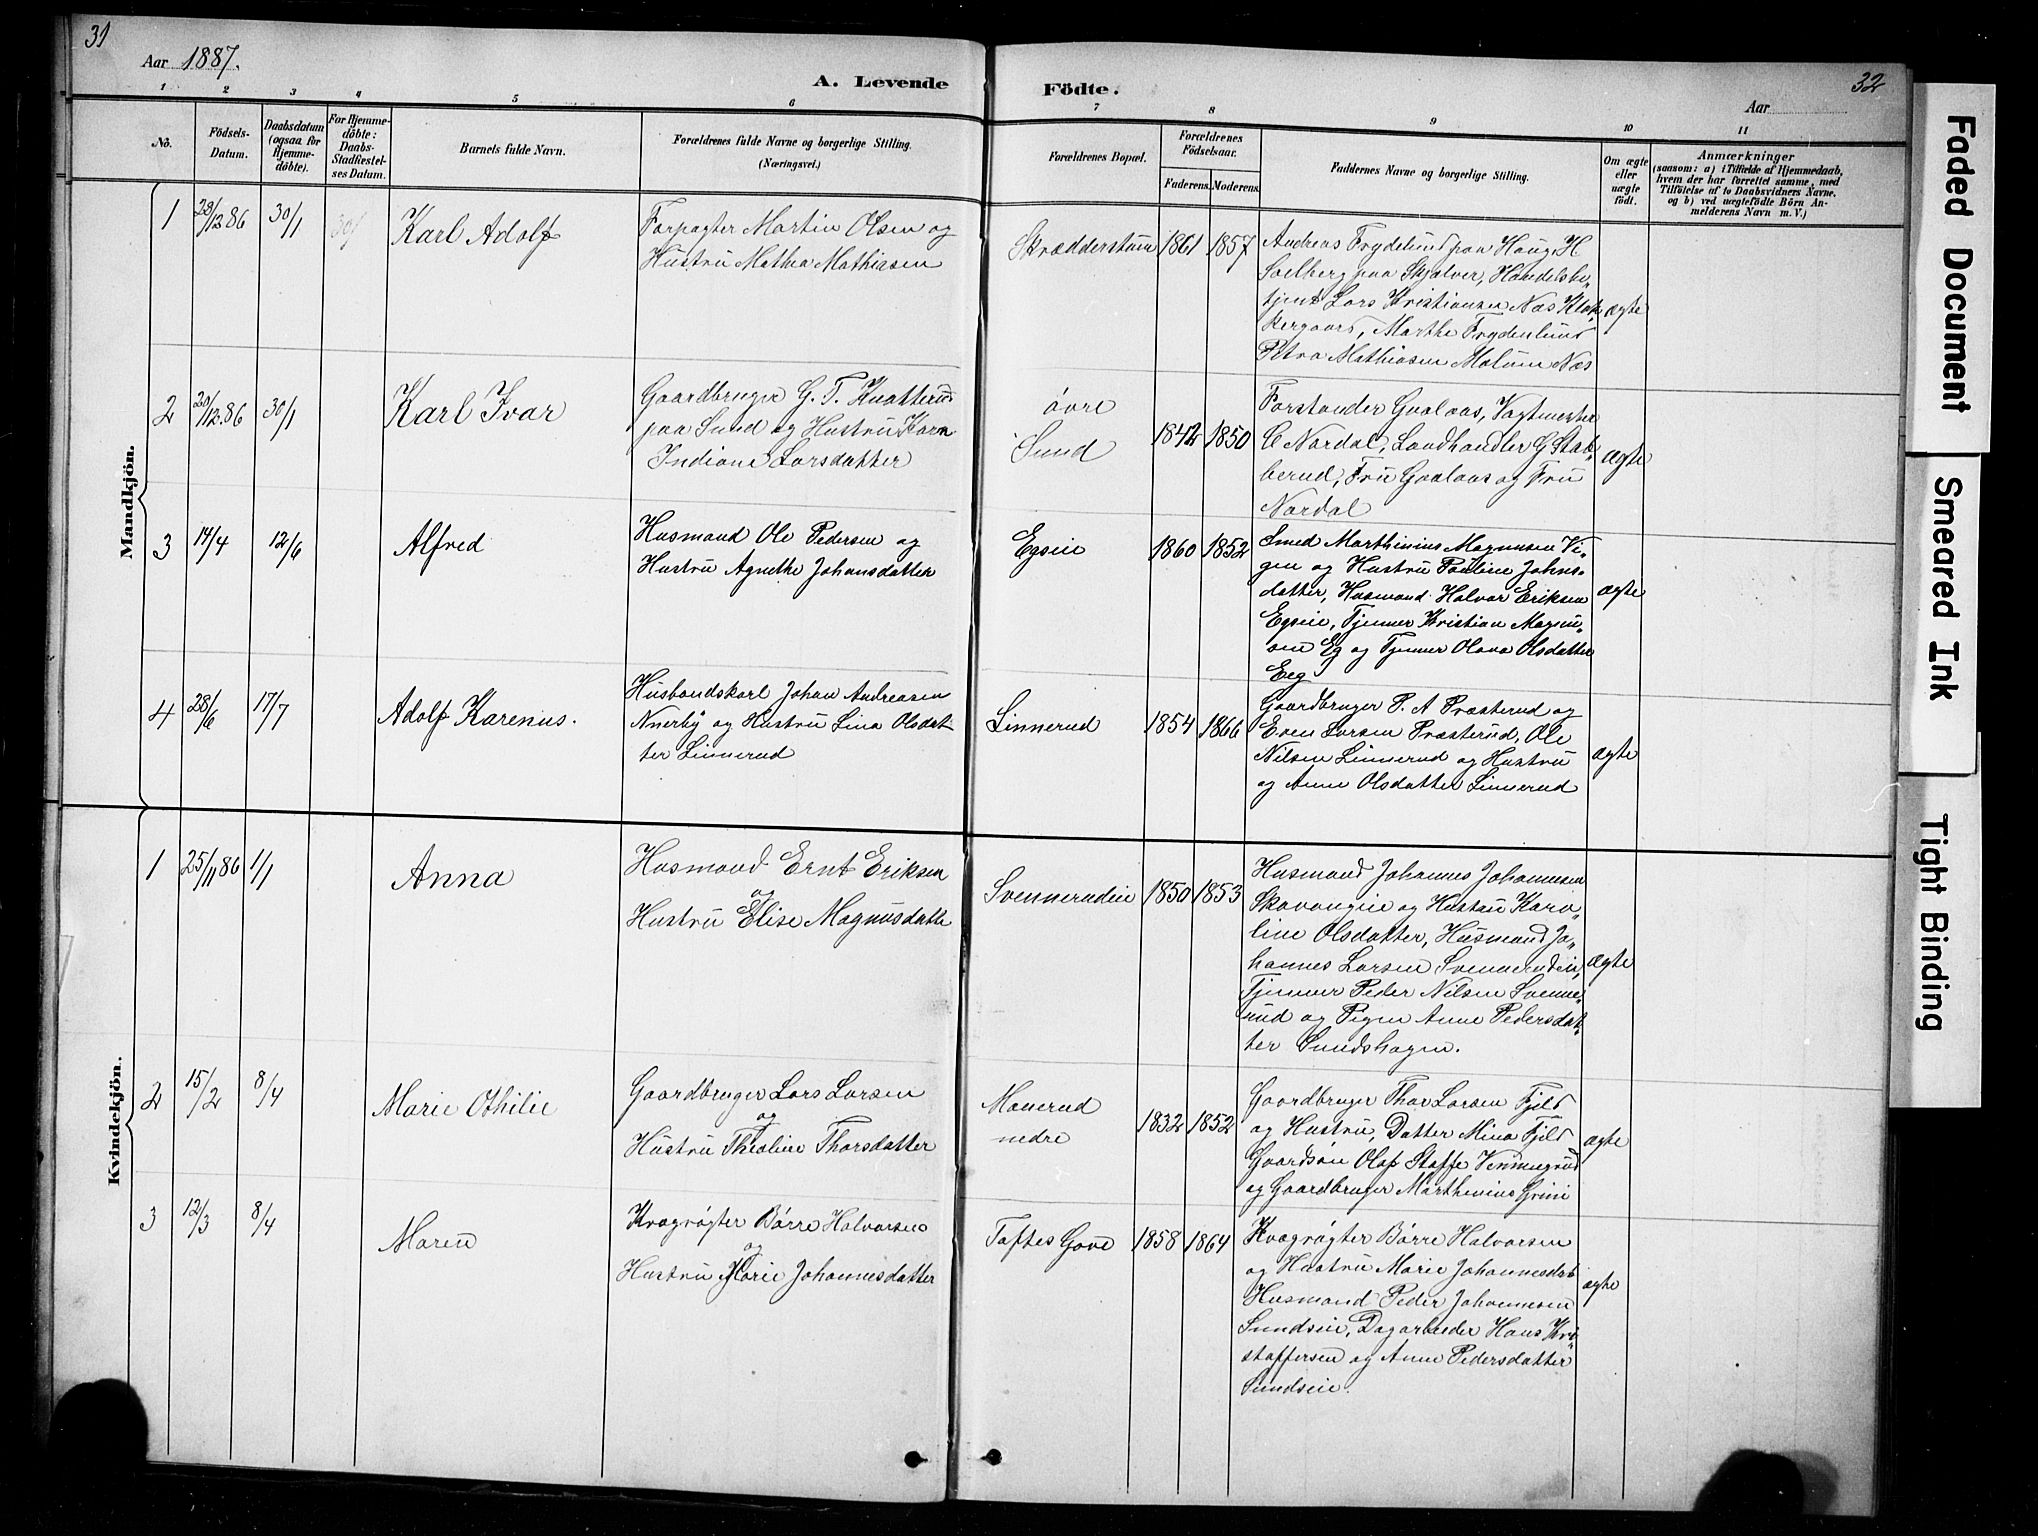 31
Aar 1887.
A. Levende
Födte.
Aar
32
1
2
3
4
5
6
7
8
9
10
11
No.
Födsels-
Datum.
Daabsdatum
(ogsaa for
Hjemme-
döbte).
For Hjemme-
döbte:
Daabs-
Stadfæstel-
ses Datum.
Barnets fulde Navn.
Forældrenes fulde Navne og borgerlige Stilling.
(Næringsvei.)
Forældrenes Bopæl.
Forældrenes
Födselsaar.
Faderens.
Moderens.
Faddernes Navne og borgerlige Stilling.
Om ægte
eller
uægte
født.
Anmærkninger
(saasom: a) i Tilfælde af Hjemmedaab,
hvem der har forrettet samme, med
Tilföielse af to Daabsvidners Navne.
og b) ved uægtefödte Börn An-
melderens Navn m. V.)
Mandkjön.
1
28/12 86
30/1
30/
Karl Adolf
Forpagter Martin Olsen og
Hustru Mathea Mathiasen
Skrædderstuen
1861
1857
Andreas Frydelund paa Haug, H
Soelberg paa Skjalver, Handelsbe-
tjent Lars Kristiansen Næs Klok-
kergaard, Marthe Frydenlund
Petra Mathiasen Molum Næs
ægte
2
20/12.86
30/1
Karl Ivar
Gaardbruger G. T. Knatterud
paa Sund og Hustru Karn
Indiane Larsdatter
øvre
Sund
1842
1850
Forstander Gaalaas, Vagtmester
C Nordal, Landhandler G Stab-
berud, Fru Gaalaas og Fru
Nordal
ægte
3
14/4
12/6
Alfred
Husmand Ole Pedersen og
Hustru Agnethe Johansdatter
Egseie
1860
1852
Smed Marthinius Magnusen Vi-
gen og Hustru Pauline Johns-
datter, Husmand Halvor Eriksen
Egseie, Tjener Kristian Magnu-
sen Eg og Tjener Olava Olsdatter
Eeg
ægte
4
28/6
17/7
Adolf Karenius.
Husbondskarl Johan Andreasen
Nnerby og Hustru Lina Olsdat
ter Linnerud
Linnerud
1854
1866
Gaardbruger P. A Præsterud og
Even Larsen Præsterud, Ole
Nilsen Linnerud og Hustru
og Anne Olsdatter Linnerud
ægte
Kvindekjön.
1
25/11 86
1/1
Anna
Husmand Ernt Eriksen
og
Hustru Elise Magnusdatte
Svennerudeie
1850
1853
Husmand Johannes Johannesen
Skavangeie og Hustru Karo-
line Olsdatter, Husmand Jo-
hannes Larsen Svennerudeie,
Tjener Peder Nilsen Svenne-
rud og Pigen Anne Pedersdat-
ter Sundshagen.
ægte
2
15/2
8/4
Marie Othilie
Gaardbruger Lars Larsen
og
Hustru Theoline Thorsdatter
Manerud
nedre
1832
1852
Gaardbruger Thor Larsen Fjeld
og Hustru, Datter Mina Fjeld
Gaardsøn Olaf Staffe
og Gaardbruger Marthinius Grini
ægte
3
12/3
8/4
Maren
Kvægrøgter Børre Halvorsen
og
Hustru Marie Johannesdatter
Toftes Gave
1858
1864
Kvægrøgter Børre Halvorsen
og Hustru Marie Johannesdat
Husmand Peder Johannesen
Sundseie, Dagarbeider Hans Kri-
stoffersen og Anne Pedersdatter
Sundseie.
ægte
Faded Document
Smeared Ink
Tight Binding